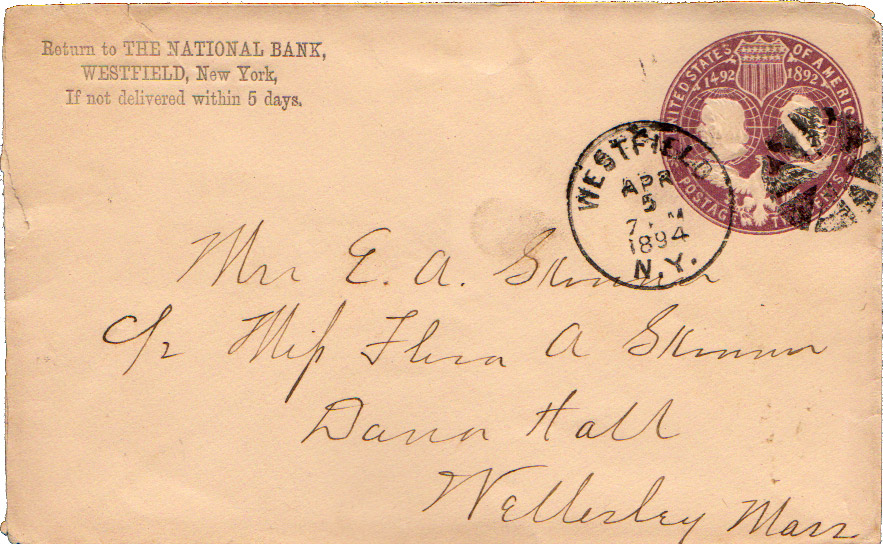 Return to THE NATIONAL BANK,
WESTFIELD, New York,
If not delivered within 5 days.
UNITED STATES OF AMERICA
1492 1892
POSTAGE TWO CENTS
WESTFIELD
APR
5
7 M
1894
N.Y.
Mrs E. A. Skinner
c/o Miss Flora A Skinner
Dana Hall
Wellesley Mass